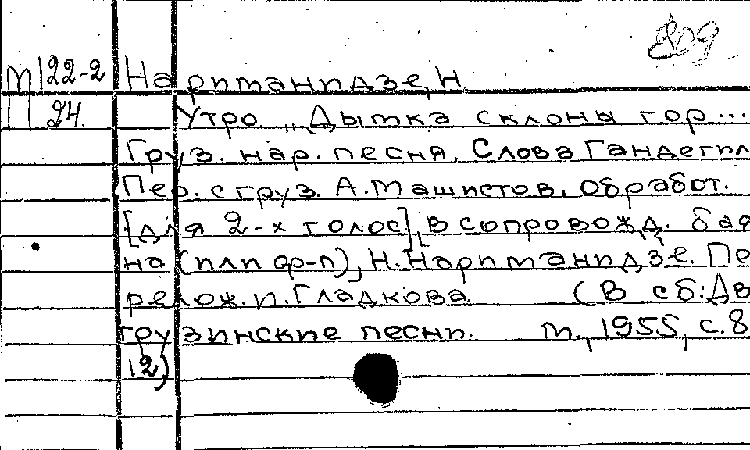 809
М 22-2 Нариманидзе, Н.
24. Утро „Дымка склоны гор...
Груз. нар. песня. Слова Гандегил
Пер. с груз. А. Машистов. Обработ.
[для 2-х голос], в сопровожд. бая
на (или ф-п), Н. Нариманидзе. Пе
релож. И. Гладкова (В сб: Дв
грузинские песни. М., 1955, с. 8
12)